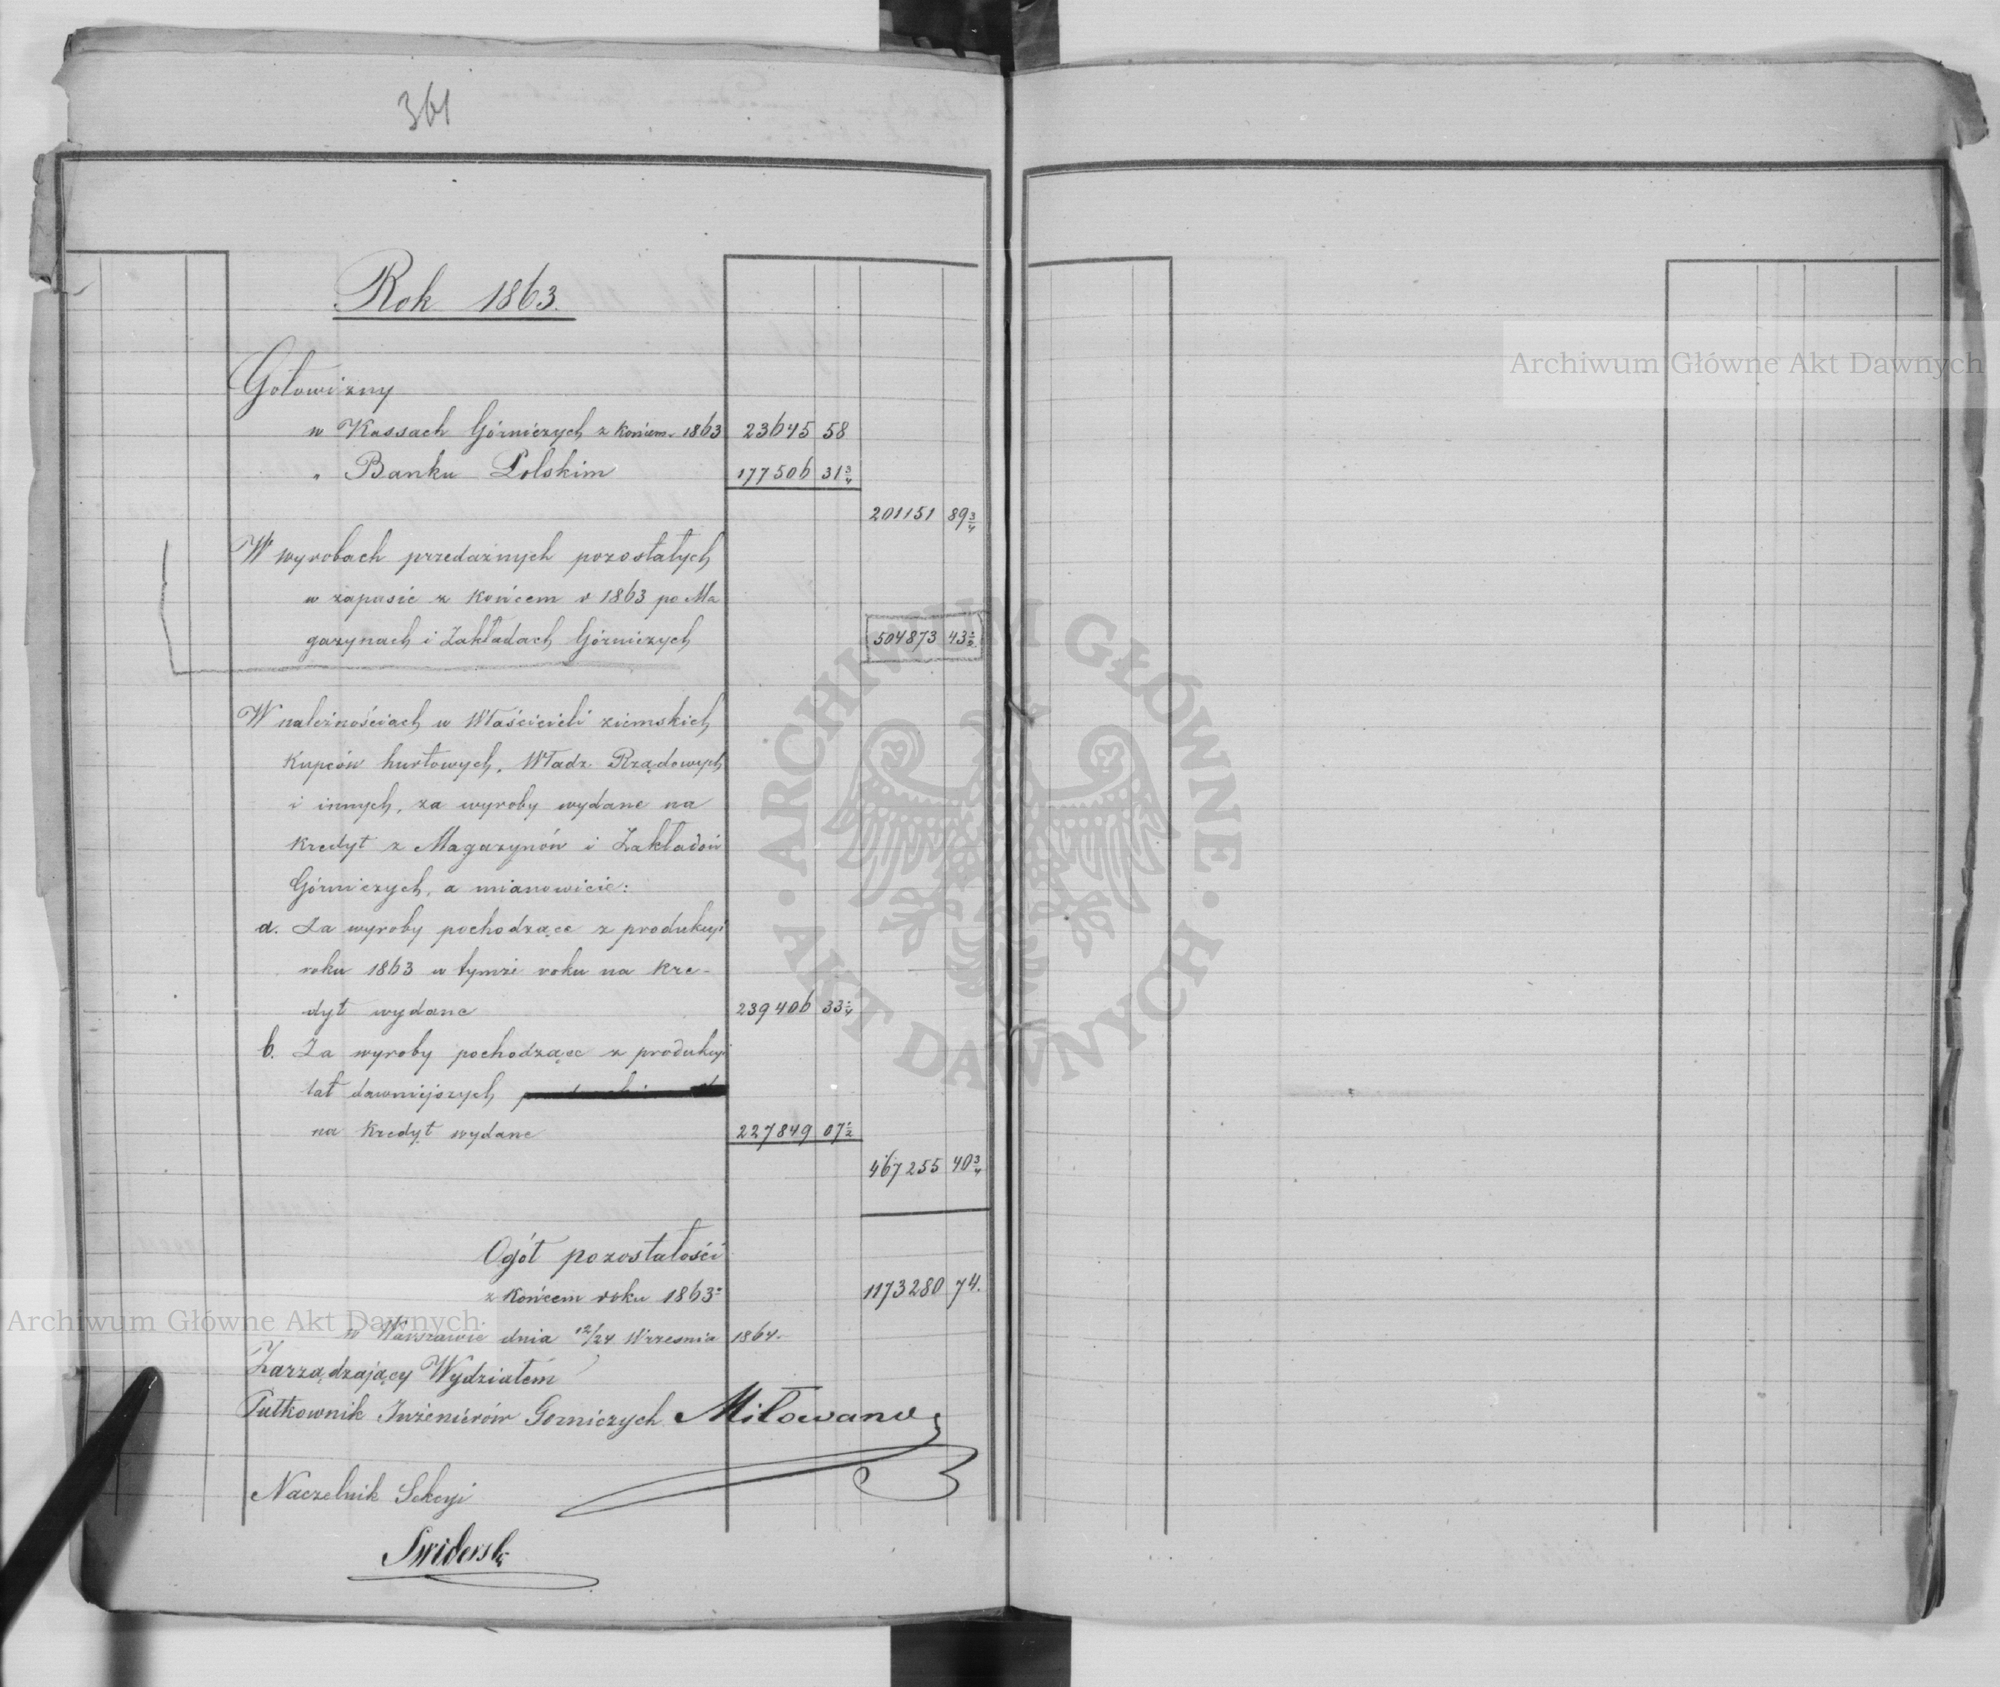 361
Rok 1863.
Gotowizny
w Kassach Górniczych z końcem 1863 23645 58
" Banku Polskim 177506 31 3/4
201151 89 3/4
W wyrobach przedażnych pozostałych
w zapasie z końcem r 1863 po Ma
gazynach i Zakładach Górniczych 504873 43 1/2
W należnościach u Właścicieli ziemskich
Kupców hurtowych, Władz Rządowych
i innych, za wyroby wydane na
kredyt z Magazynów i Zakładów
Górniczych, a mianowicie:
a. Za wyroby pochodzące z produkcyi
roku 1863 w tymże roku na kre-
dyt wydane 239406 33 1/4
b. Za wyroby pochodzące z produkcyi
lat dawniejszych
na kredyt wydane 227849 07 1/2
467255 40 3/4
Ogół pozostałości
z końcem roku 1863: 1173280 74.
w Warszawie dnia 12/24 Wrzesnia 1864.
Zarządzający Wydziałem
Pułkownik Inżenierów Gorniczych Miłowanow
Naczelnik Sekcyi
Swiderski
Archiwum Główne Akt Dawnych
Archiwum Główne Akt Dawnych
· ARCHIWUM GŁÓWNE · AKT DAWNYCH